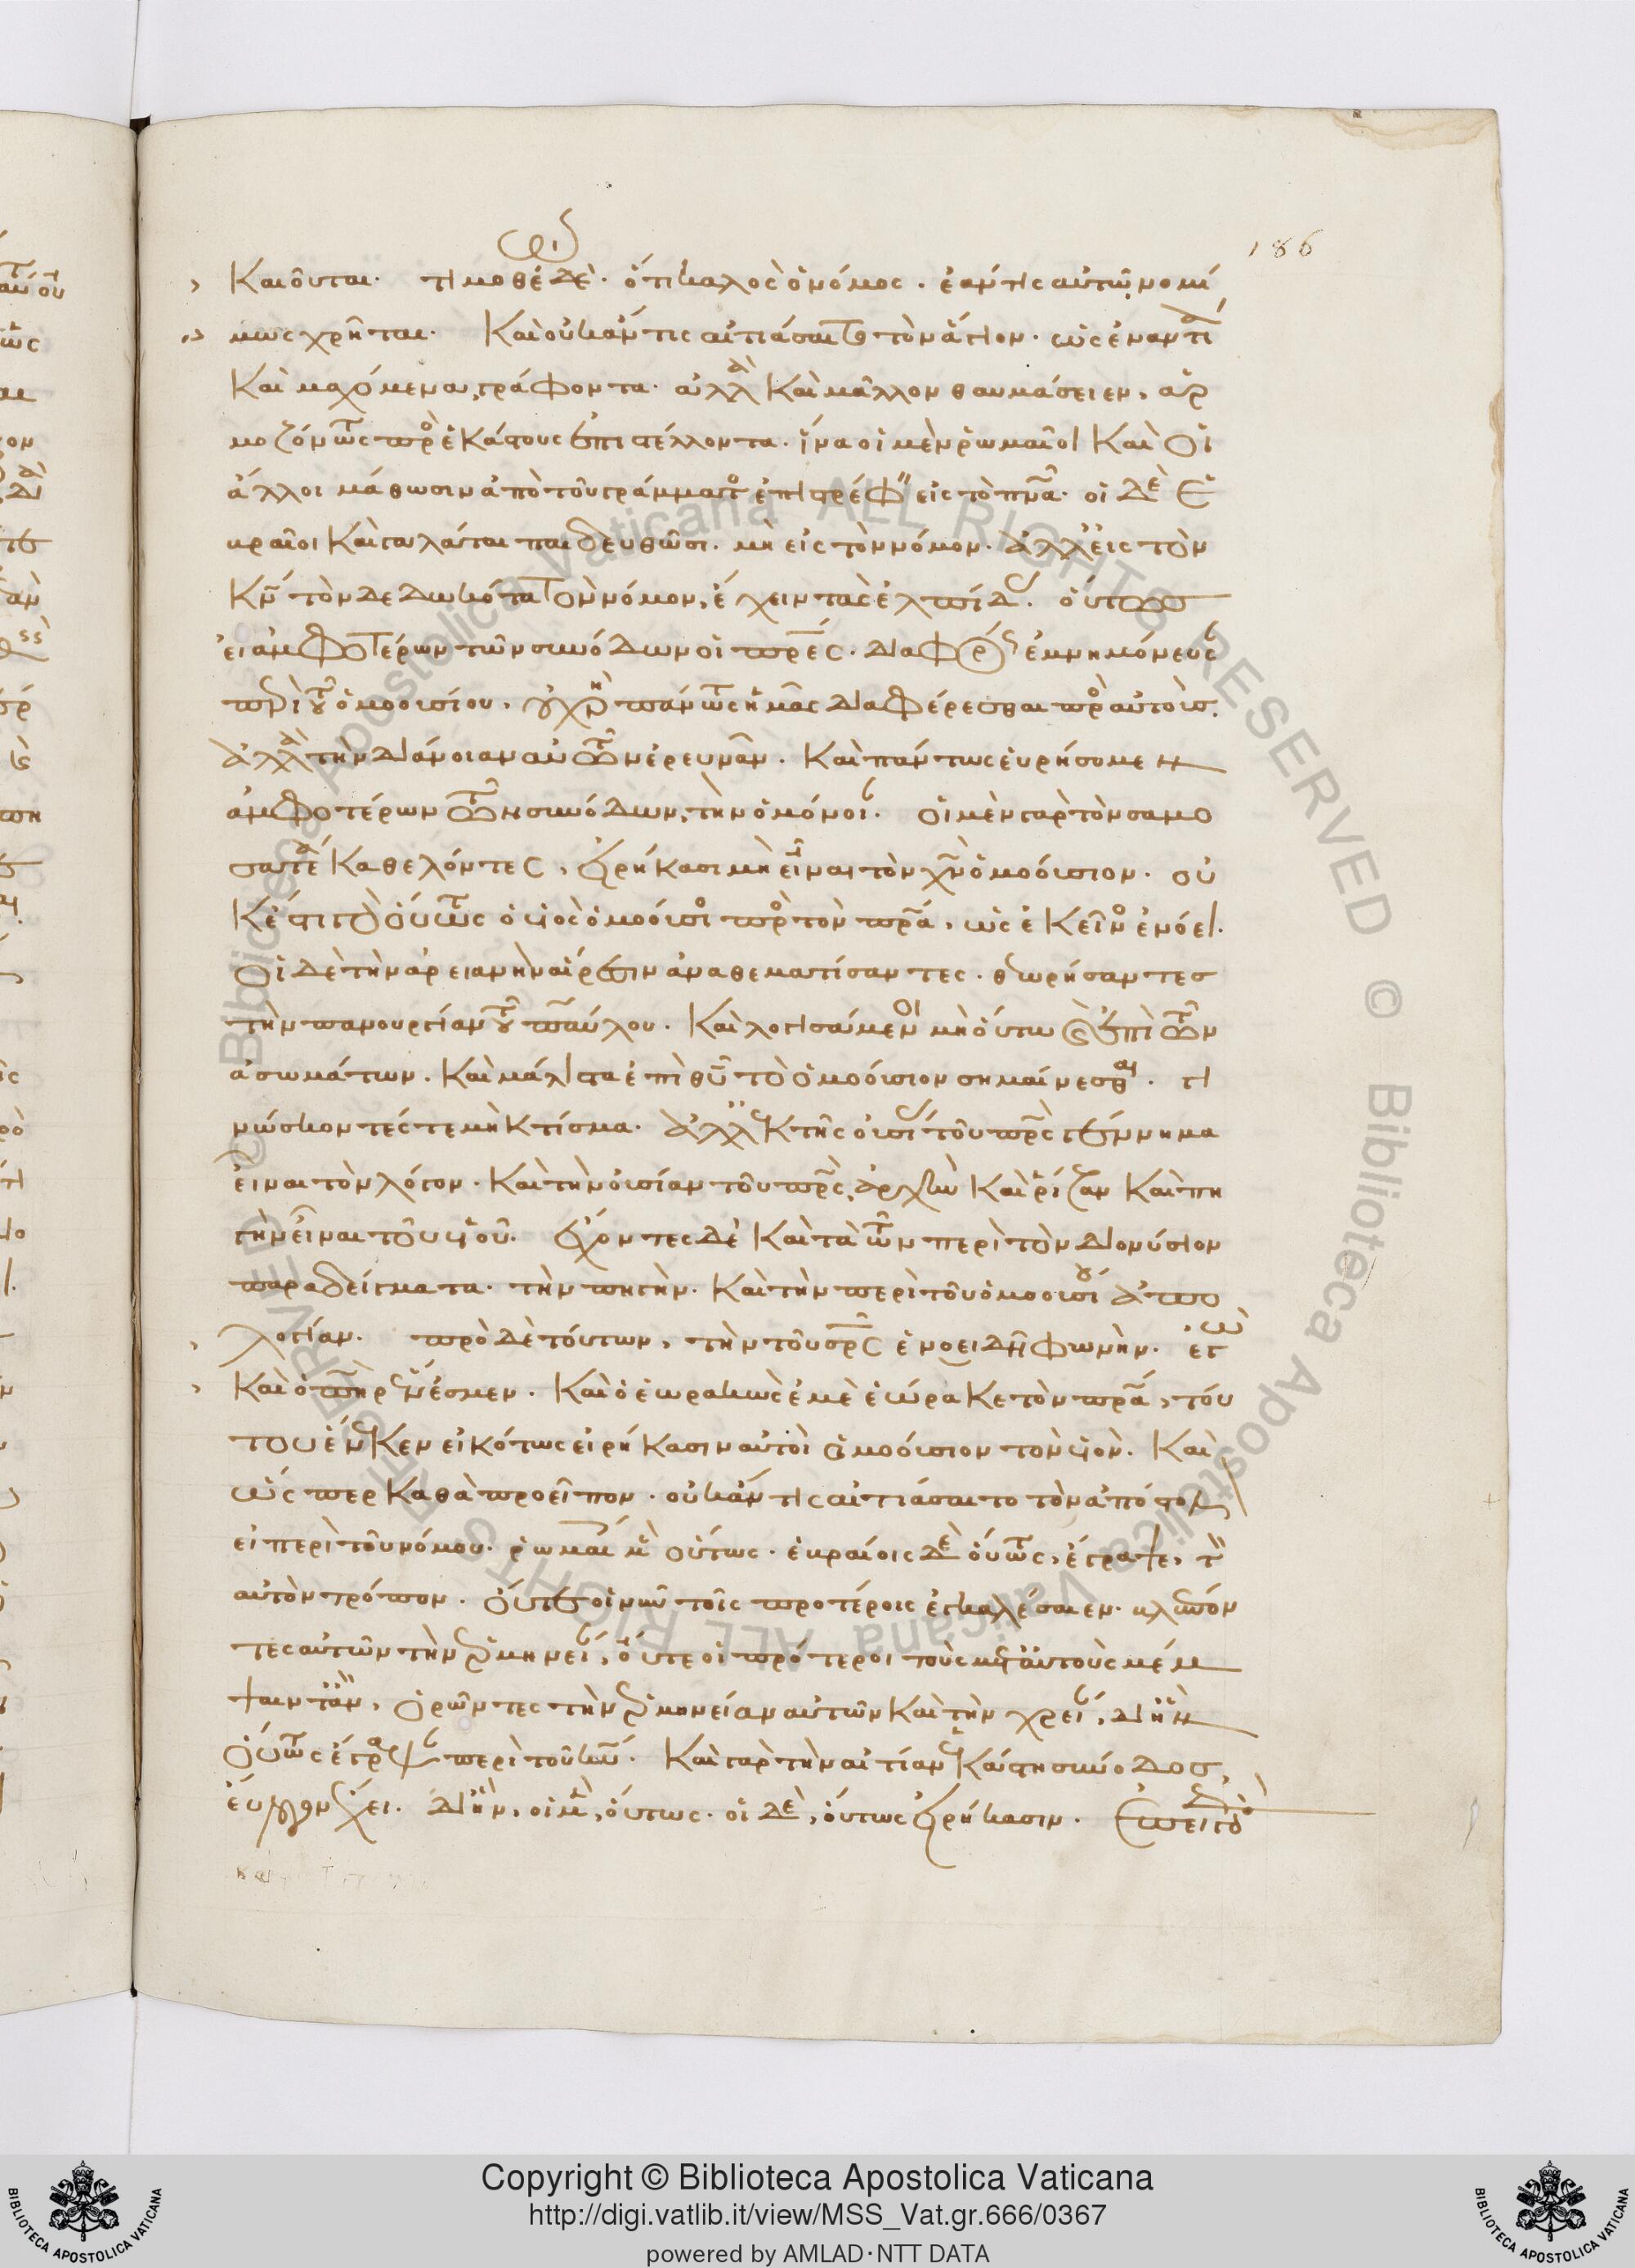 186
καιοῦται. τιμοθέῳ δὲ. ὅτι καλὸς ὁ νόμος. ἐάν τις αὐτῷ νομί
μως χρῆται. καὶ οὐκ ἄν τις αἰτιάσαιτο τὸν ἅγιον. ὡς ἐναντία
καὶ μαχόμενα γράφοντα. ἀλλὰ καὶ μᾶλλον θαυμάσειεν, ἁρ
μοζόντως πρὸς ἑκάστους ἐπιστέλλοντα. ἵνα οἱ μὲν ῥωμαῖοι καὶ οἱ
ἄλλοι μάθωσιν ἀπὸ τοῦ γράμματος ἐπιστρέφειν εἰς τὸ πνα. οἱ δὲ ἑ
βραῖοι καὶ γαλάται παιδευθῶσι. μὴ εἰς τὸν νόμον. ἀλλ' εἰς τὸν
κν τὸν δεδωκότα τὸν νόμον, ἔχειν τὰς ἐλπίδας. οὕτως
εἰ ἀμφοτέρων τῶν συνόδων οἱ πρες. διαφόρως ἐμνημόνευσαν
περὶ τοῦ ὁμοουσίου, οὐ χρὴ πάντως ἡμᾶς διαφέρεσθαι πρὸς αὐτοὺς.
ἀλλὰ τὴν διάνοιαν αὐτῶν ἐρευνᾶν. καὶ πάντως εὑρήσομεν
ἀμφοτέρων τῶν συνόδων, τὴν ὁμόνοιαν. οἱ μὲν γὰρ τὸν σαμο
σατέα καθελόντες, εἰρήκασι μὴ εἶναι τὸν χν ὁμοούσιον. οὐκ
ἔστι γὰρ οὕτως ὁ υἱὸς ὁμοούσιος πρὸς τὸν πρα, ὡς ἐκεῖνος ἐνόει.
οἱ δὲ τὴν ἀρειανὴν αἵρεσιν ἀναθεματίσαντες. θεωρήσαντες
τὴν πανουργίαν τοῦ παύλου. καὶ λογισάμενοι μὴ οὕτω καὶ ἐπὶ τῶν
ἀσωμάτων. καὶ μάλιστα ἐπὶ θυ τὸ ὁμοούσιον σημαίνεσθαι. γι
νώσκοντές τε μὴ κτίσμα. ἀλλ' ἐκ τῆς οὐσίας τοῦ πρς γέννημα
εἶναι τὸν λόγον. καὶ τὴν οὐσίαν τοῦ πρς, ἀρχὴν καὶ ῥίζαν καὶ πη
γὴν εἶναι τοῦ υἱοῦ. ἔχοντες δὲ καὶ τὰ τῶν περὶ τὸν διονύσιον
παραδείγματα. τὴν πηγὴν. καὶ τὴν περὶ τοῦ ὁμοουσίου ἀπο
λογίαν. πρὸ δὲ τούτων, τὴν τοῦ σρς ἑνοειδῆ φωνὴν. ἐγὼ
καὶ ὁ πηρ ἕν ἐσμεν. καὶ ὁ ἑωρακὼς ἐμὲ ἑώρακε τὸν πρα, τού
του ἕνεκεν εἰκότως εἰρήκασιν αὐτοὶ ὁμοούσιον τὸν υἱὸν. καὶ
ὥσπερ καθὰ προεῖπον. οὐκ ἄν τις αἰτιάσαιτο τὸν ἀπόστολον
εἰ περὶ τοῦ νόμου. ῥωμαίοις μὲν οὕτως. ἑβραίοις δὲ οὕτως, ἔγραψε, τὸν
αὐτὸν τρόπον. οὔτε οἱ νῦν τοῖς προτέροις ἐγκαλέσαιεν. βλέπον
τες αὐτῶν τὴν ἑρμηνείαν, οὔτε οἱ πρότεροι τοὺς μετ' αὐτοὺς μέμ
ψαιντ' ἂν, ὁρῶντες τὴν ἑρμηνείαν αὐτῶν καὶ τὴν χρείαν, δι' ἣν
οὕτως ἔγραψαν περὶ τοῦ κυ. καὶ γὰρ τὴν αἰτίαν ἑκάστη σύνοδος,
εὔλογον ἔχει. δι' ἣν, οἱ μὲν, οὕτως. οἱ δὲ, οὕτως εἰρήκασιν. ἐπειδὴ γὰρ
Copyright © Biblioteca Apostolica Vaticana
http://digi.vatlib.it/view/MSS_Vat.gr.666/0367
powered by AMLAD·NTT DATA